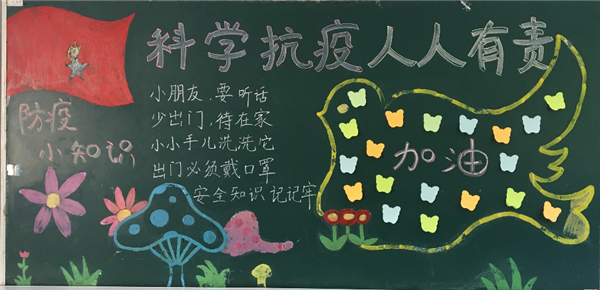 科学抗疫人人有责
防疫
小知识
小朋友，要听话
少出门，待在家
小小手儿洗洗它
出门必须戴口罩
安全知识记记牢
加油